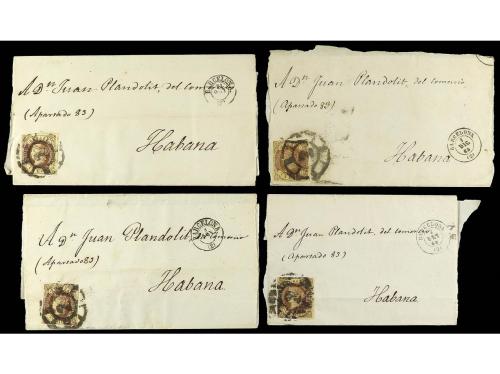 A Dn Juan Plandolit, del comercio
BARCELONA
(Apartado 83)
Habana
A Dn Juan Plandolit, del comercio
(Apartado 83)
BARCELONA
Habana
A Dn Juan Plandolit, del comercio
BARCELONA
(Apartado 83)
Habana
A Dn Juan Plandolit, del comercio
BARCELONA
(Apartado 83)
Habana